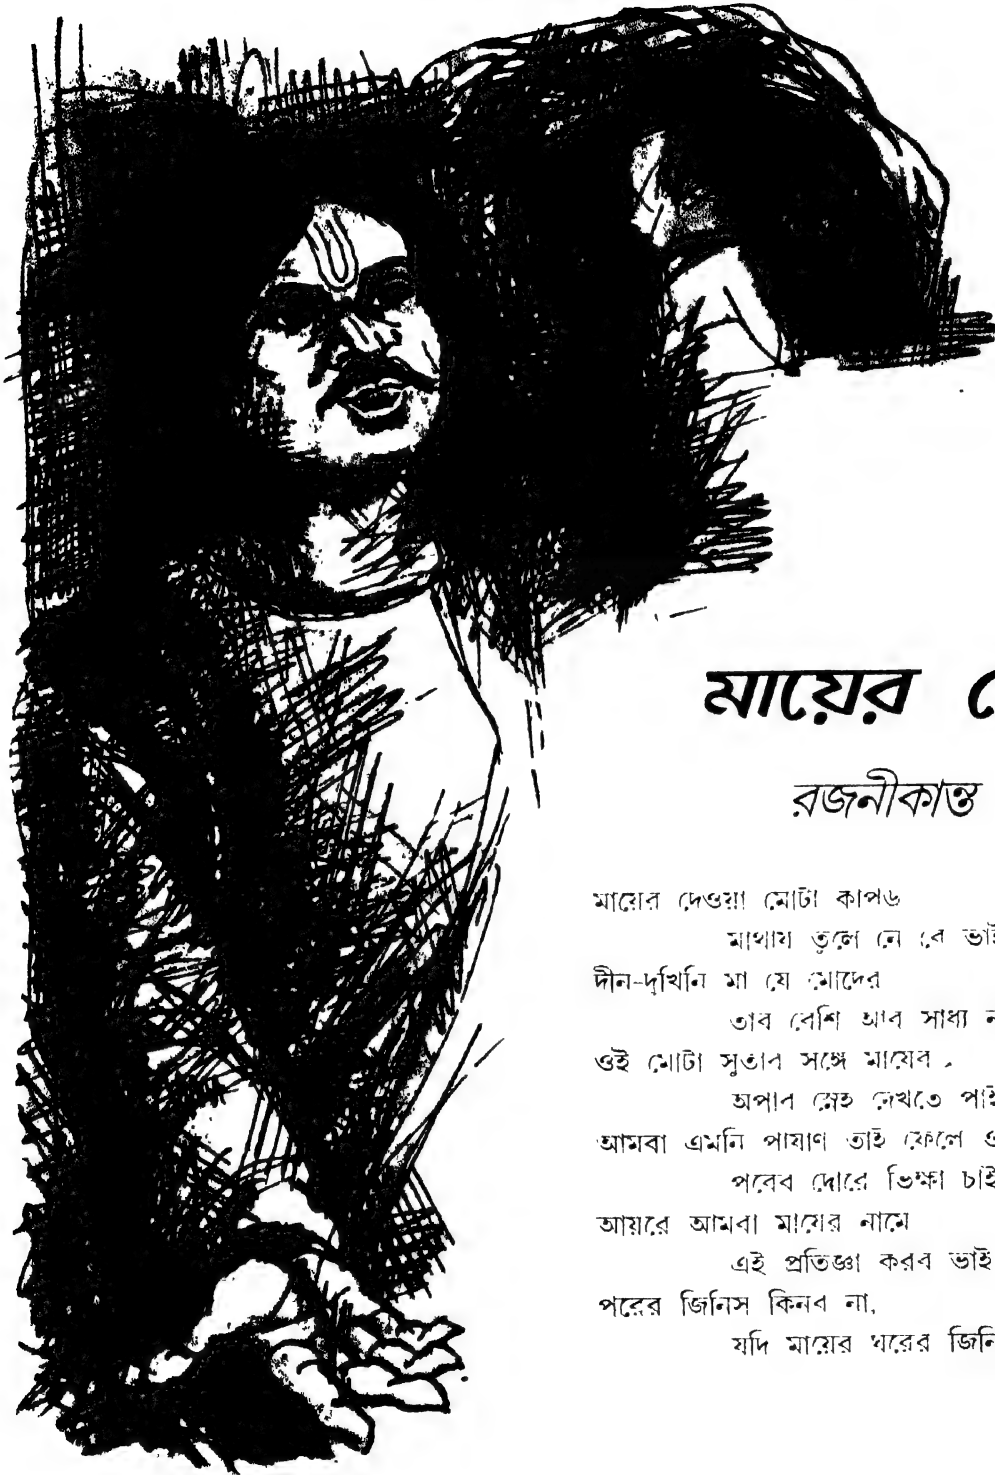 মায়ের
রজনীকান্ত
মায়ের দেওয়া মোটা কাপড়
মাথায় তুলে নে রে ভাই
দীন-দুখিনি মা যে মোদের
তার বেশি আর সাধ্য
ওই মোটা সুতার সঙ্গে মায়ের
অপার স্নেহ দেখতে পাই
আমরা এমনি পাষাণ তাই ফেলে
পরের দোরে ভিক্ষা চাই
আয়রে আমরা মায়ের নামে
এই প্রতিজ্ঞা করব ভাই
পরের জিনিস কিনব না,
যদি মায়ের ঘরের